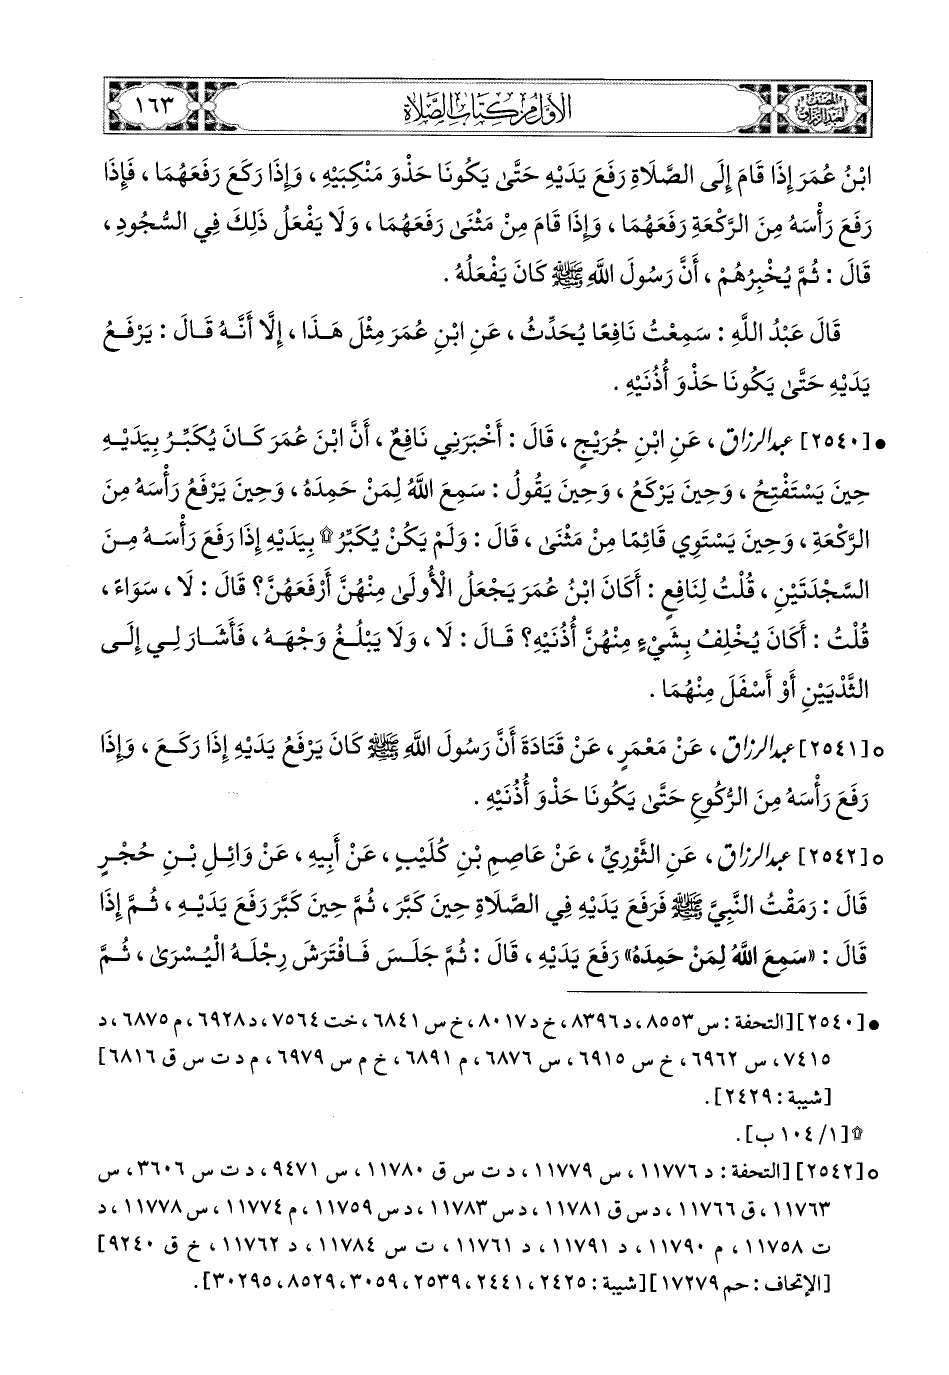 المصنف
لعبد الرزاق
الأول من كتاب الصلاة
١٦٣
ابْنُ عُمَرَ إِذَا قَامَ إِلَى الصَّلَاةِ رَفَعَ يَدَيْهِ حَتَّىٰ يَكُونَا حَذْوَ مَنْكِبَيْهِ ، وَإِذَا رَكَعَ رَفَعَهُمَا ، فَإِذَا
رَفَعَ رَأْسَهُ مِنَ الرَّكْعَةِ رَفَعَهُمَا ، وَإِذَا قَامَ مِنْ مَثْنَىٰ رَفَعَهُمَا ، وَلَا يَفْعَلُ ذَلِكَ فِي السُّجُودِ ،
قَالَ : ثُمَّ يُخْبِرُهُمْ ، أَنَّ رَسُولَ اللَّهِ ﷺ كَانَ يَفْعَلُهُ .
قَالَ عَبْدُ اللَّهِ : سَمِعْتُ نَافِعًا يُحَدِّثُ ، عَنِ ابْنِ عُمَرَ مِثْلَ هَذَا ، إِلَّا أَنَّهُ قَالَ : يَرْفَعُ
يَدَيْهِ حَتَّىٰ يَكُونَا حَذْوَ أُذُنَيْهِ .
• [٢٥٤٠] عبد الرزاق ، عَنِ ابْنِ جُرَيْجٍ ، قَالَ : أَخْبَرَنِي نَافِعٌ ، أَنَّ ابْنَ عُمَرَ كَانَ يُكَبِّرُ بِيَدَيْهِ
حِينَ يَسْتَفْتِحُ ، وَحِينَ يَرْكَعُ ، وَحِينَ يَقُولُ : سَمِعَ اللَّهُ لِمَنْ حَمِدَهُ ، وَحِينَ يَرْفَعُ رَأْسَهُ مِنَ
الرَّكْعَةِ ، وَحِينَ يَسْتَوِي قَائِمًا مِنْ مَثْنَىٰ ، قَالَ : وَلَمْ يَكُنْ يُكَبِّرُ ۩ بِيَدَيْهِ إِذَا رَفَعَ رَأْسَهُ مِنَ
السَّجْدَتَيْنِ ، قُلْتُ لِنَافِعٍ : أَكَانَ ابْنُ عُمَرَ يَجْعَلُ الْأُولَىٰ مِنْهُنَّ أَرْفَعَهُنَّ؟ قَالَ : لَا ، سَوَاءً ،
قُلْتُ : أَكَانَ يُخْلِفُ بِشَيْءٍ مِنْهُنَّ أُذُنَيْهِ؟ قَالَ : لَا ، وَلَا يَبْلُغُ وَجْهَهُ ، فَأَشَارَ لِي إِلَى
الثَّدْيَيْنِ أَوْ أَسْفَلَ مِنْهُمَا .
○ [٢٥٤١] عبد الرزاق ، عَنْ مَعْمَرٍ ، عَنْ قَتَادَةَ أَنَّ رَسُولَ اللَّهِ ﷺ كَانَ يَرْفَعُ يَدَيْهِ إِذَا رَكَعَ ، وَإِذَا
رَفَعَ رَأْسَهُ مِنَ الرُّكُوعِ حَتَّىٰ يَكُونَا حَذْوَ أُذُنَيْهِ .
○ [٢٥٤٢] عبد الرزاق ، عَنِ الثَّوْرِيِّ ، عَنْ عَاصِمِ بْنِ كُلَيْبٍ ، عَنْ أَبِيهِ ، عَنْ وَائِلِ بْنِ حُجْرٍ
قَالَ : رَمَقْتُ النَّبِيَّ ﷺ فَرَفَعَ يَدَيْهِ فِي الصَّلَاةِ حِينَ كَبَّرَ ، ثُمَّ حِينَ كَبَّرَ رَفَعَ يَدَيْهِ ، ثُمَّ إِذَا
قَالَ : «سَمِعَ اللَّهُ لِمَنْ حَمِدَهُ» رَفَعَ يَدَيْهِ ، قَالَ : ثُمَّ جَلَسَ فَافْتَرَشَ رِجْلَهُ الْيُسْرَىٰ ، ثُمَّ
• [٢٥٤٠] [التحفة : س ٨٥٥٣ ، د ٨٣٩٦ ، خ د ٨٠١٧ ، خ س ٦٨٤١ ، خت ٧٥٦٤ ، د ٦٩٢٨ ، م ٦٨٧٥ ، د
٧٤١٥ ، س ٦٩٦٢ ، خ س ٦٩١٥ ، س ٦٨٧٦ ، م ٦٨٩١ ، خ م س ٦٩٧٩ ، م د ت س ق ٦٨١٦]
[شيبة : ٢٤٢٩] .
۩ [١/ ١٠٤ ب] .
○ [٢٥٤٢] [التحفة : د ١١٧٧٦ ، س ١١٧٧٩ ، د ت س ق ١١٧٨٠ ، س ٩٤٧١ ، د ت س ٣٦٠٦ ، س
١١٧٦٣ ، ق ١١٧٦٦ ، د س ق ١١٧٨١ ، د س ١١٧٨٣ ، د س ١١٧٥٩ ، م ١١٧٧٤ ، س ١١٧٧٨ ، د
ت ١١٧٥٨ ، م ١١٧٩٠ ، د ١١٧٩١ ، د ١١٧٦١ ، ت س ١١٧٨٤ ، د ١١٧٦٢ ، خ ق ٩٢٤٠]
[الإتحاف : حم ١٧٢٧٩] [شيبة : ٢٤٢٥ ، ٢٤٤١ ، ٢٥٣٩ ، ٣٠٥٩ ، ٨٥٢٩ ، ٣٠٢٩٥] .